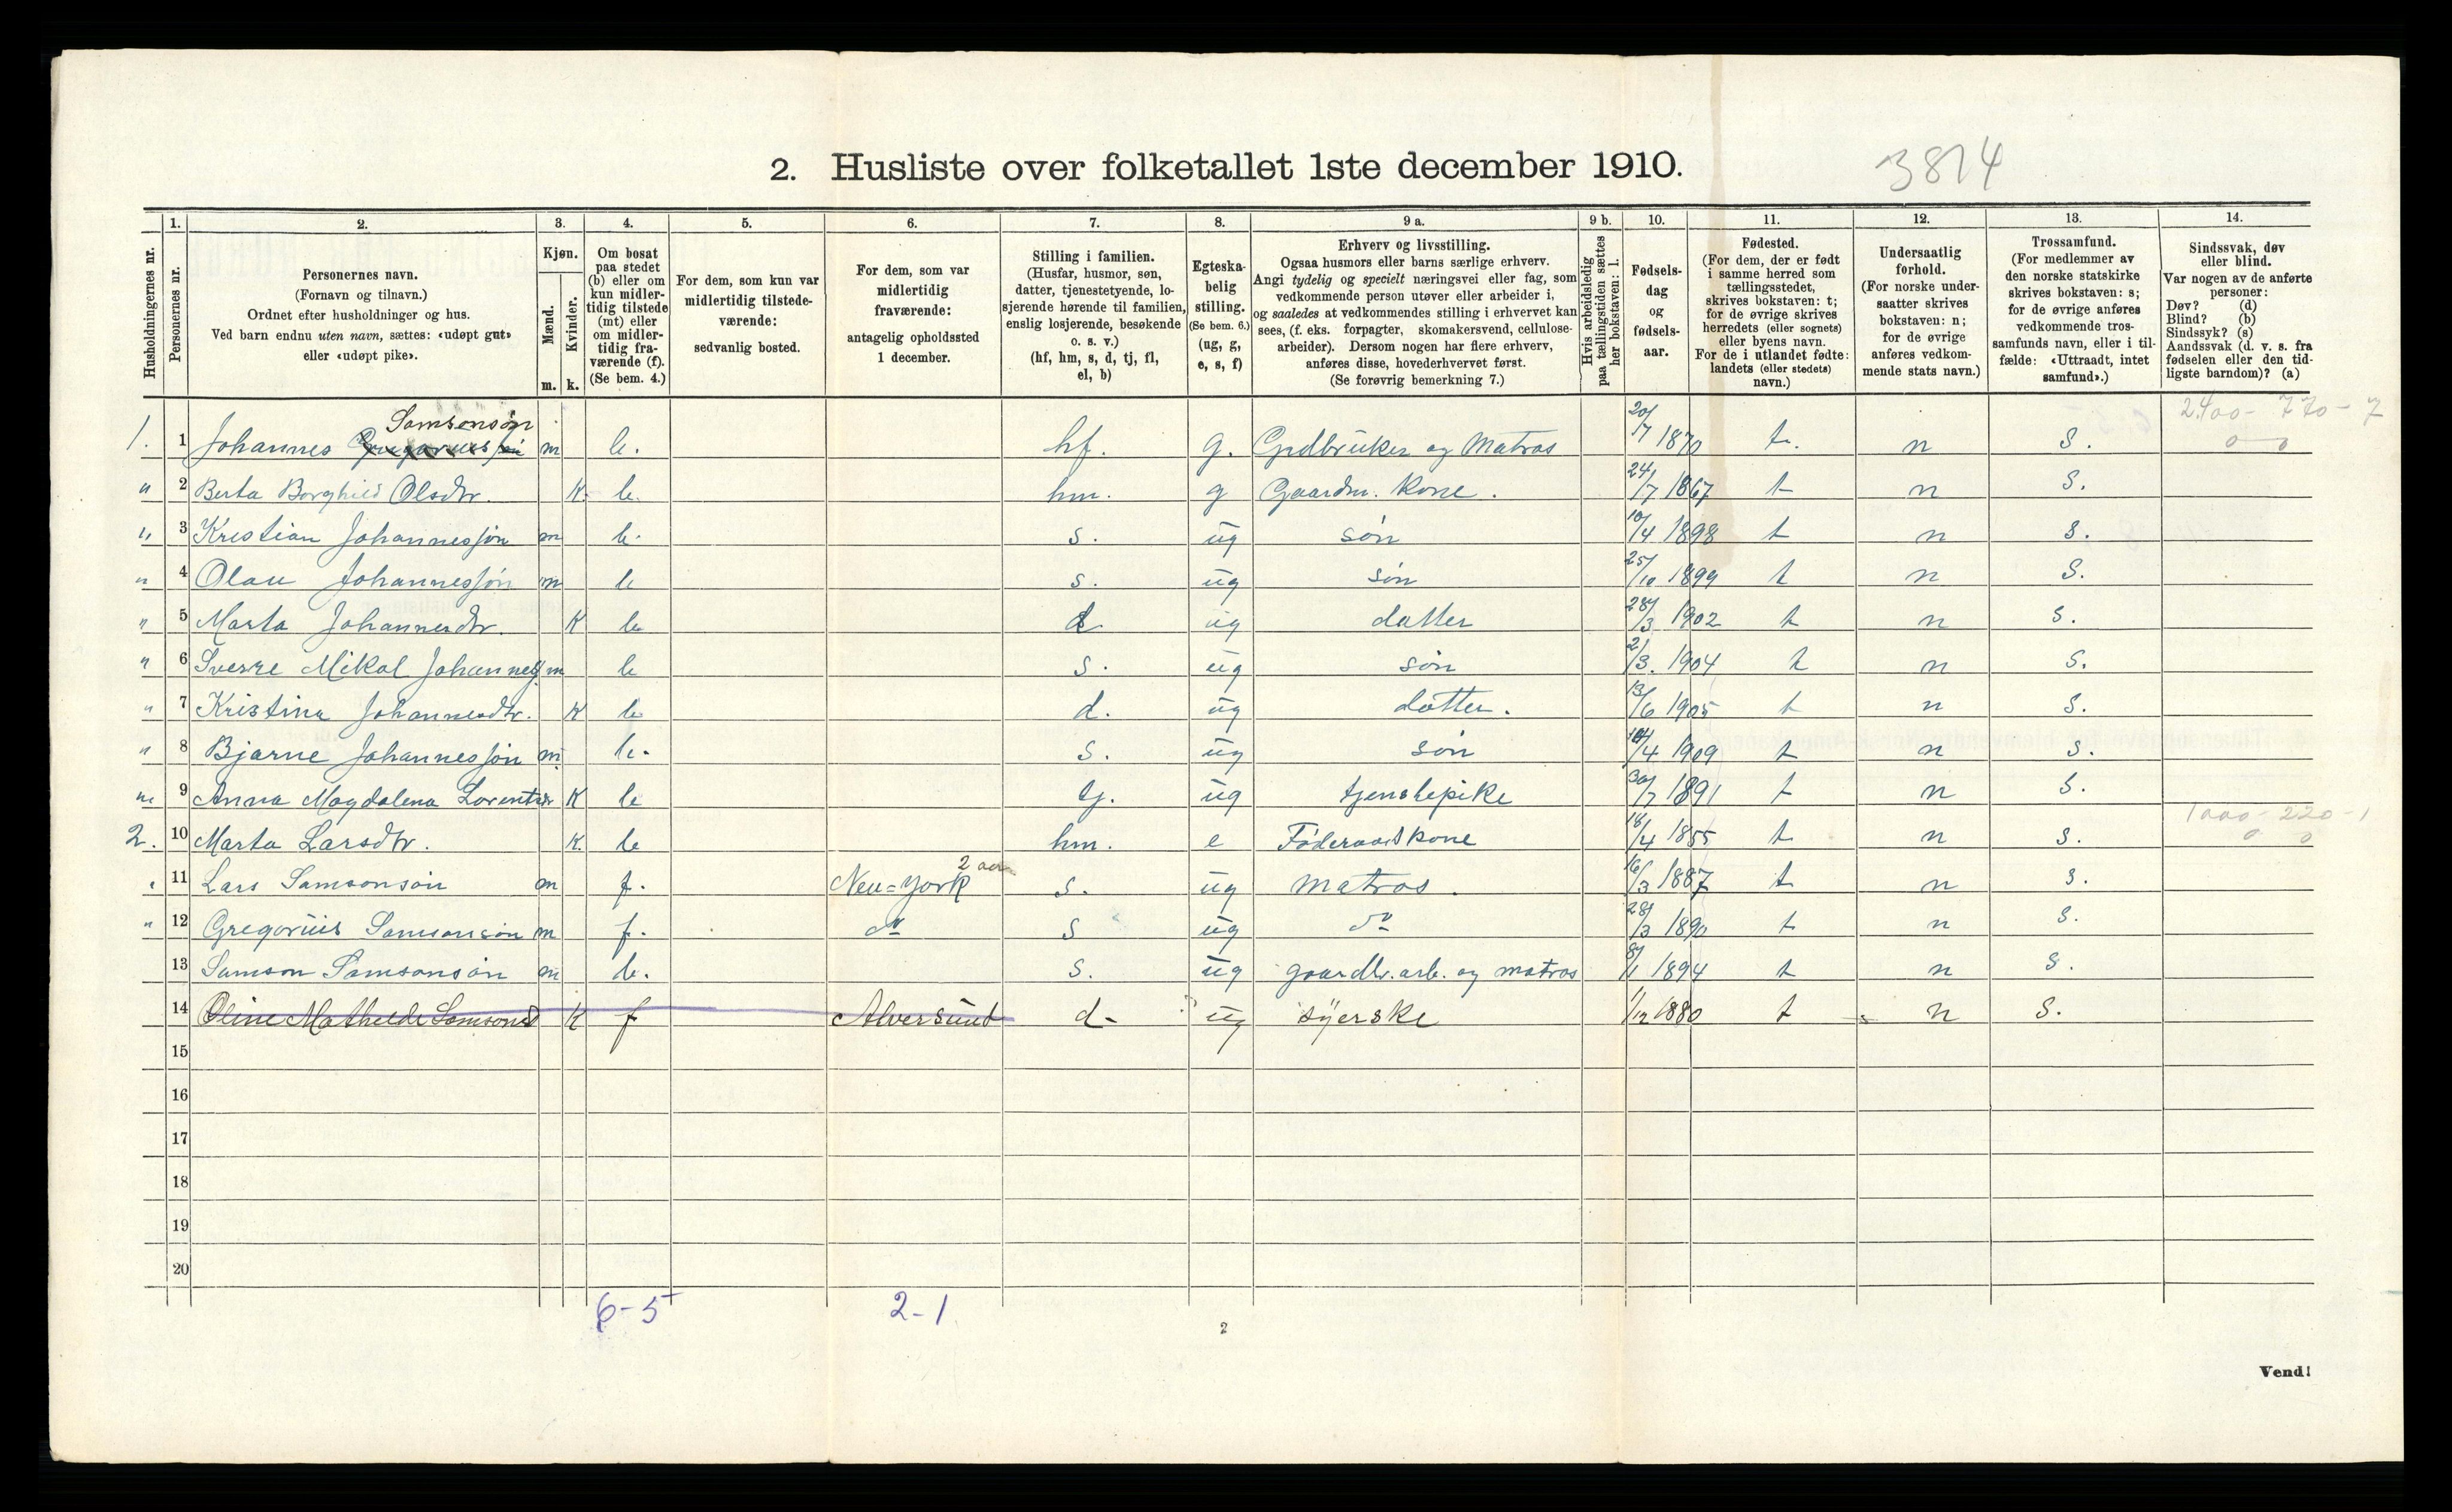 2. Husliste over folketallet 1ste december 1910.
3814
1. 2. 3. 4. 5. 6. 7. 8. 9 a. 9 b. 10. 11. 12. 13. 14.
Husholdningernes nr.
Personernes nr.
Personernes navn.
(Fornavn og tilnavn.)
Ordnet efter husholdninger og hus.
Ved barn endnu uten navn, sættes: «udøpt gut»
eller «udøpt pike».
Kjøn.
Mænd.
Kvinder.
m. k.
Om bosat
paa stedet
(b) eller om
kun midler-
tidig tilstede
(mt) eller
om midler-
tidig fra-
værende (f).
(Se bem. 4.)
For dem, som kun var
midlertidig tilstede-
værende:
sedvanlig bosted.
For dem, som var
midlertidig
fraværende:
antagelig opholdssted
1 december.
Stilling i familien.
(Husfar, husmor, søn,
datter, tjenestetyende, lo-
sjerende hørende til familien,
enslig losjerende, besøkende
o. s. v.)
(hf, hm, s, d, tj, fl,
el, b)
Egteska-
belig
stilling.
(Se bem. 6.)
(ug, g,
e, s, f)
Erhverv og livsstilling.
Ogsaa husmors eller barns særlige erhverv.
Angi tydelig og specielt næringsvei eller fag, som
vedkommende person utøver eller arbeider i,
og saaledes at vedkommendes stilling i erhvervet kan
sees, (f. eks. forpagter, skomakersvend, cellulose-
arbeider). Dersom nogen har flere erhverv,
anføres disse, hovederhvervet først.
(Se forøvrig bemerkning 7.)
Hvis arbeidsledig
paa tællingstiden sættes
her bokstaven: l.
Fødsels-
dag
og
fødsels-
aar.
Fødested.
(For dem, der er født
i samme herred som
tællingsstedet,
skrives bokstaven: t;
for de øvrige skrives
herredets (eller sognets)
eller byens navn.
For de i utlandet fødte:
landets (eller stedets)
navn.)
Undersaatlig
forhold.
(For norske under-
saatter skrives
bokstaven: n;
for de øvrige
anføres vedkom-
mende stats navn.)
Trossamfund.
(For medlemmer av
den norske statskirke
skrives bokstaven: s;
for de øvrige anføres
vedkommende tros-
samfunds navn, eller i til-
fælde: «Uttraadt, intet
samfund».)
Sindssvak, døv
eller blind.
Var nogen av de anførte
personer:
Døv? (d)
Blind? (b)
Sindssyk? (s)
Aandssvak (d. v. s. fra
fødselen eller den tid-
ligste barndom)? (a)
2400 - 770 - 7
0 0
Samsonsøn
1. 1 Johannes Gregoriussøn m b. hf. g. Grdbruker og Matros 20/7 1870 t. n s.
" 2 Berta Borghild Olsdtr. K b. hm. g Gaardm. Kone. 24/7 1867 t n s.
" 3 Kristian Johannessøn m b. s. ug søn 10/4 1898 t n s.
" 4 Olau Johannessøn m b s. ug søn 25/10 1899 t n s.
" 5 Marta Johannesdtr. K b d. ug datter 28/3 1902 t n s.
" 6 Sverre Mikal Johanness. m b s. ug søn 2/3. 1904 t n s.
" 7 Kristina Johannesdtr. K b d. ug datter. 13/6 1905 t n s.
" 8 Bjarne Johannessøn m b. s. ug søn /4 1909 t n s.
" 9 Anna Magdalena Lorentsdtr K b tj. ug tjenstepike 30/7 1891 t n s.
1000 - 220 - 1
0 0
2. 10 Marta Larsdtr. K. b hm. e Føderaadskone 18/4 1855 t n s.
" 11 Lars Samsonsøn m f. New-York 2 aar s. ug matros. 16/3 1887 t n s.
" 12 Gregorius Samsonsøn m f. do s ug do 28/3 1890 t n s.
13 Samson Samsonsøn m b. s. ug gaardbr. arb. og matros 8/1 1894 t n s.
14 Oline Mathilde Samsonsd K f Alversund d- ug syerske 1/12 1880 t n s.
15
16
17
18
19
20
6-5 2-1
2
Vend!